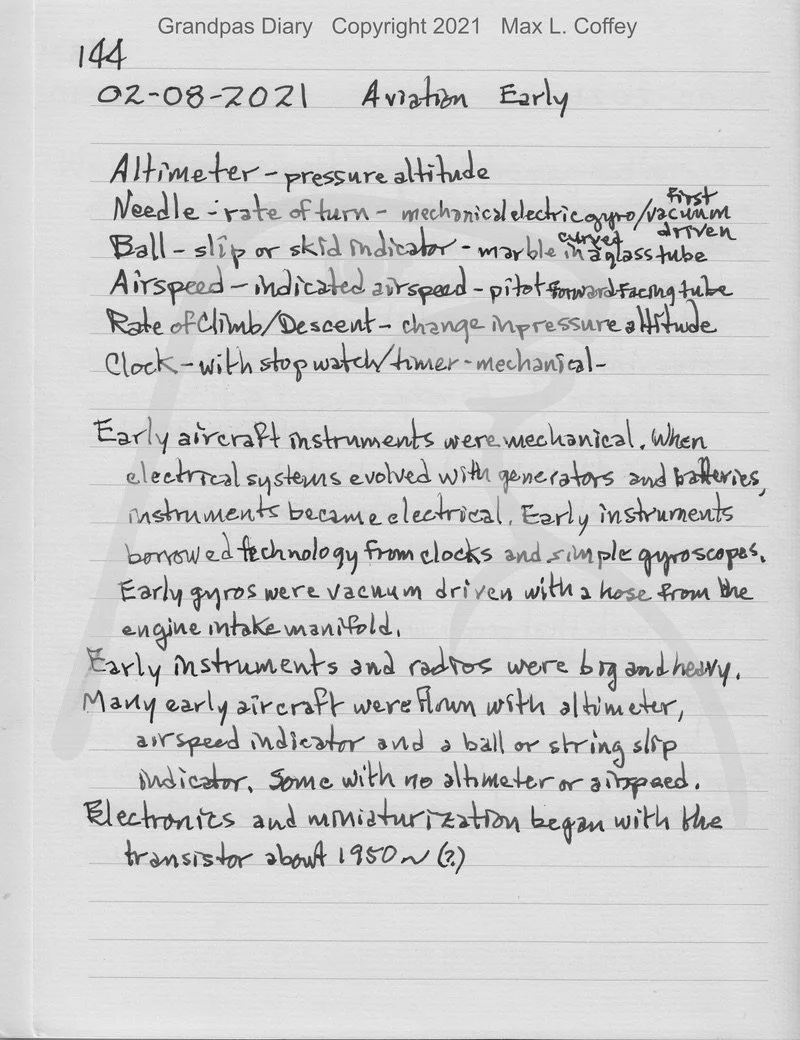 Grandpas Diary Copyright 2021 Max L. Coffey
144
02-08-2021 Aviation Early
Altimeter - pressure altitude
Needle - rate of turn - mechanical electric gyro/vacuum first driven
Ball - slip or skid indicator - marble in curved a glass tube
Airspeed - indicated airspeed - pitot forward facing tube
Rate of Climb/Descent - change in pressure altitude
Clock - with stop watch/timer - mechanical -
Early aircraft instruments were mechanical. When
electrical systems evolved with generators and batteries,
instruments became electrical. Early instruments
borrowed technology from clocks and simple gyroscopes.
Early gyros were vacuum driven with a hose from the
engine intake manifold.
Early instruments and radios were big and heavy.
Many early aircraft were flown with altimeter,
airspeed indicator and a ball or string slip
indicator. Some with no altimeter or airspeed.
Electronics and miniaturization began with the
transistor about 1950 ~ (?)